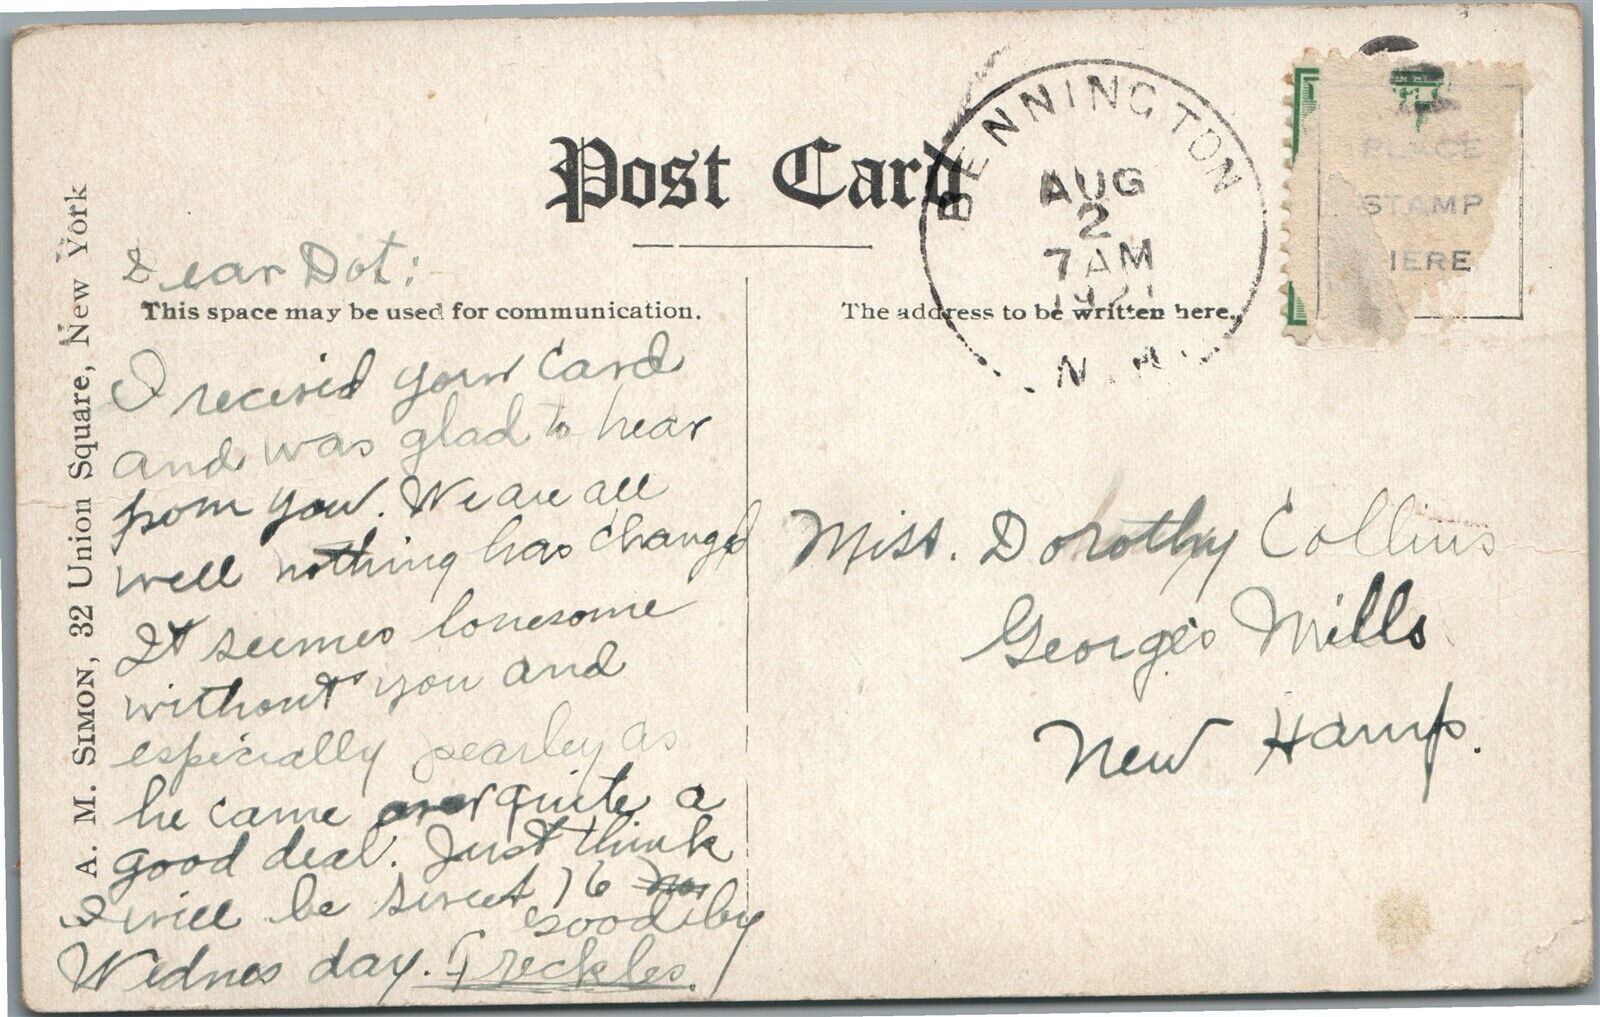 Post Card
BENNINGTON
AUG
2
7 AM
1921
N.H.
PLACE
STAMP
HERE
A. M. SIMON, 32 Union Square, New York
Dear Dot:-
This space may be used for communication.
The address to be written here.
I received your card
and was glad to hear
from you. We are all
well nothing has changed
It seemes lonesome
without you and
especially pearley as
he came over quite a
good deal. Just think
I will be sweet 16
Wednes day. Good by
Freckles.
Miss. Dorothy Collins
George's Mills
New Hamp.